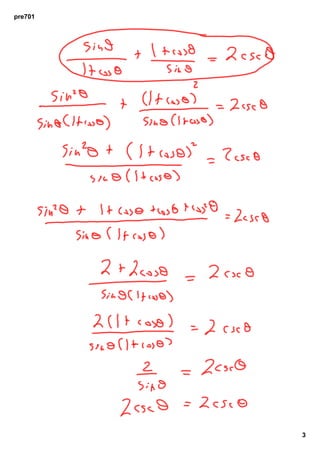 pre701
sinθ/(1+cosθ) + (1+cosθ)/sinθ = 2cscθ
sin²θ/(sinθ(1+cosθ)) + (1+cosθ)²/(sinθ(1+cosθ)) = 2cscθ
(sin²θ + (1+cosθ)²)/(sinθ(1+cosθ)) = 2cscθ
(sin²θ + 1+cosθ+cosθ+cos²θ)/(sinθ(1+cosθ)) = 2cscθ
(2+2cosθ)/(sinθ(1+cosθ)) = 2cscθ
2(1+cosθ)/(sinθ(1+cosθ)) = 2cscθ
2/sinθ = 2cscθ
2cscθ = 2cscθ
3